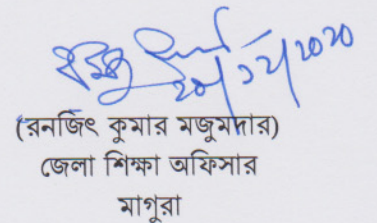 ২০/১২/২০২০
(রনজিৎ কুমার মজুমদার)
জেলা শিক্ষা অফিসার
মাগুরা